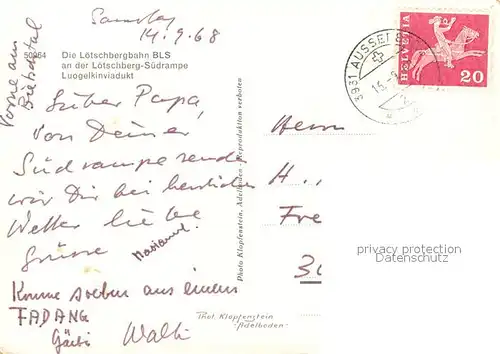 Samstag
14.9.68
50264 Die Lötschbergbahn BLS
an der Lötschberg-Südrampe
Luogelkinviadukt
Vorne am
Bietschtal
Lieber Papa,
Von Deiner
Südrampe sende
wir Dir bei herrlichem
Wetter liebe
Grüsse
Marianne.
Komme soeben aus einem
FADANG
Walti
Photo Klopfenstein, Adelboden - Reproduktion verboten
Phot. Klopfenstein
Adelboden
3931 AUSSERB
HELVETIA
20
Herrn
H..
Fre
30
privacy protection
Datenschutz